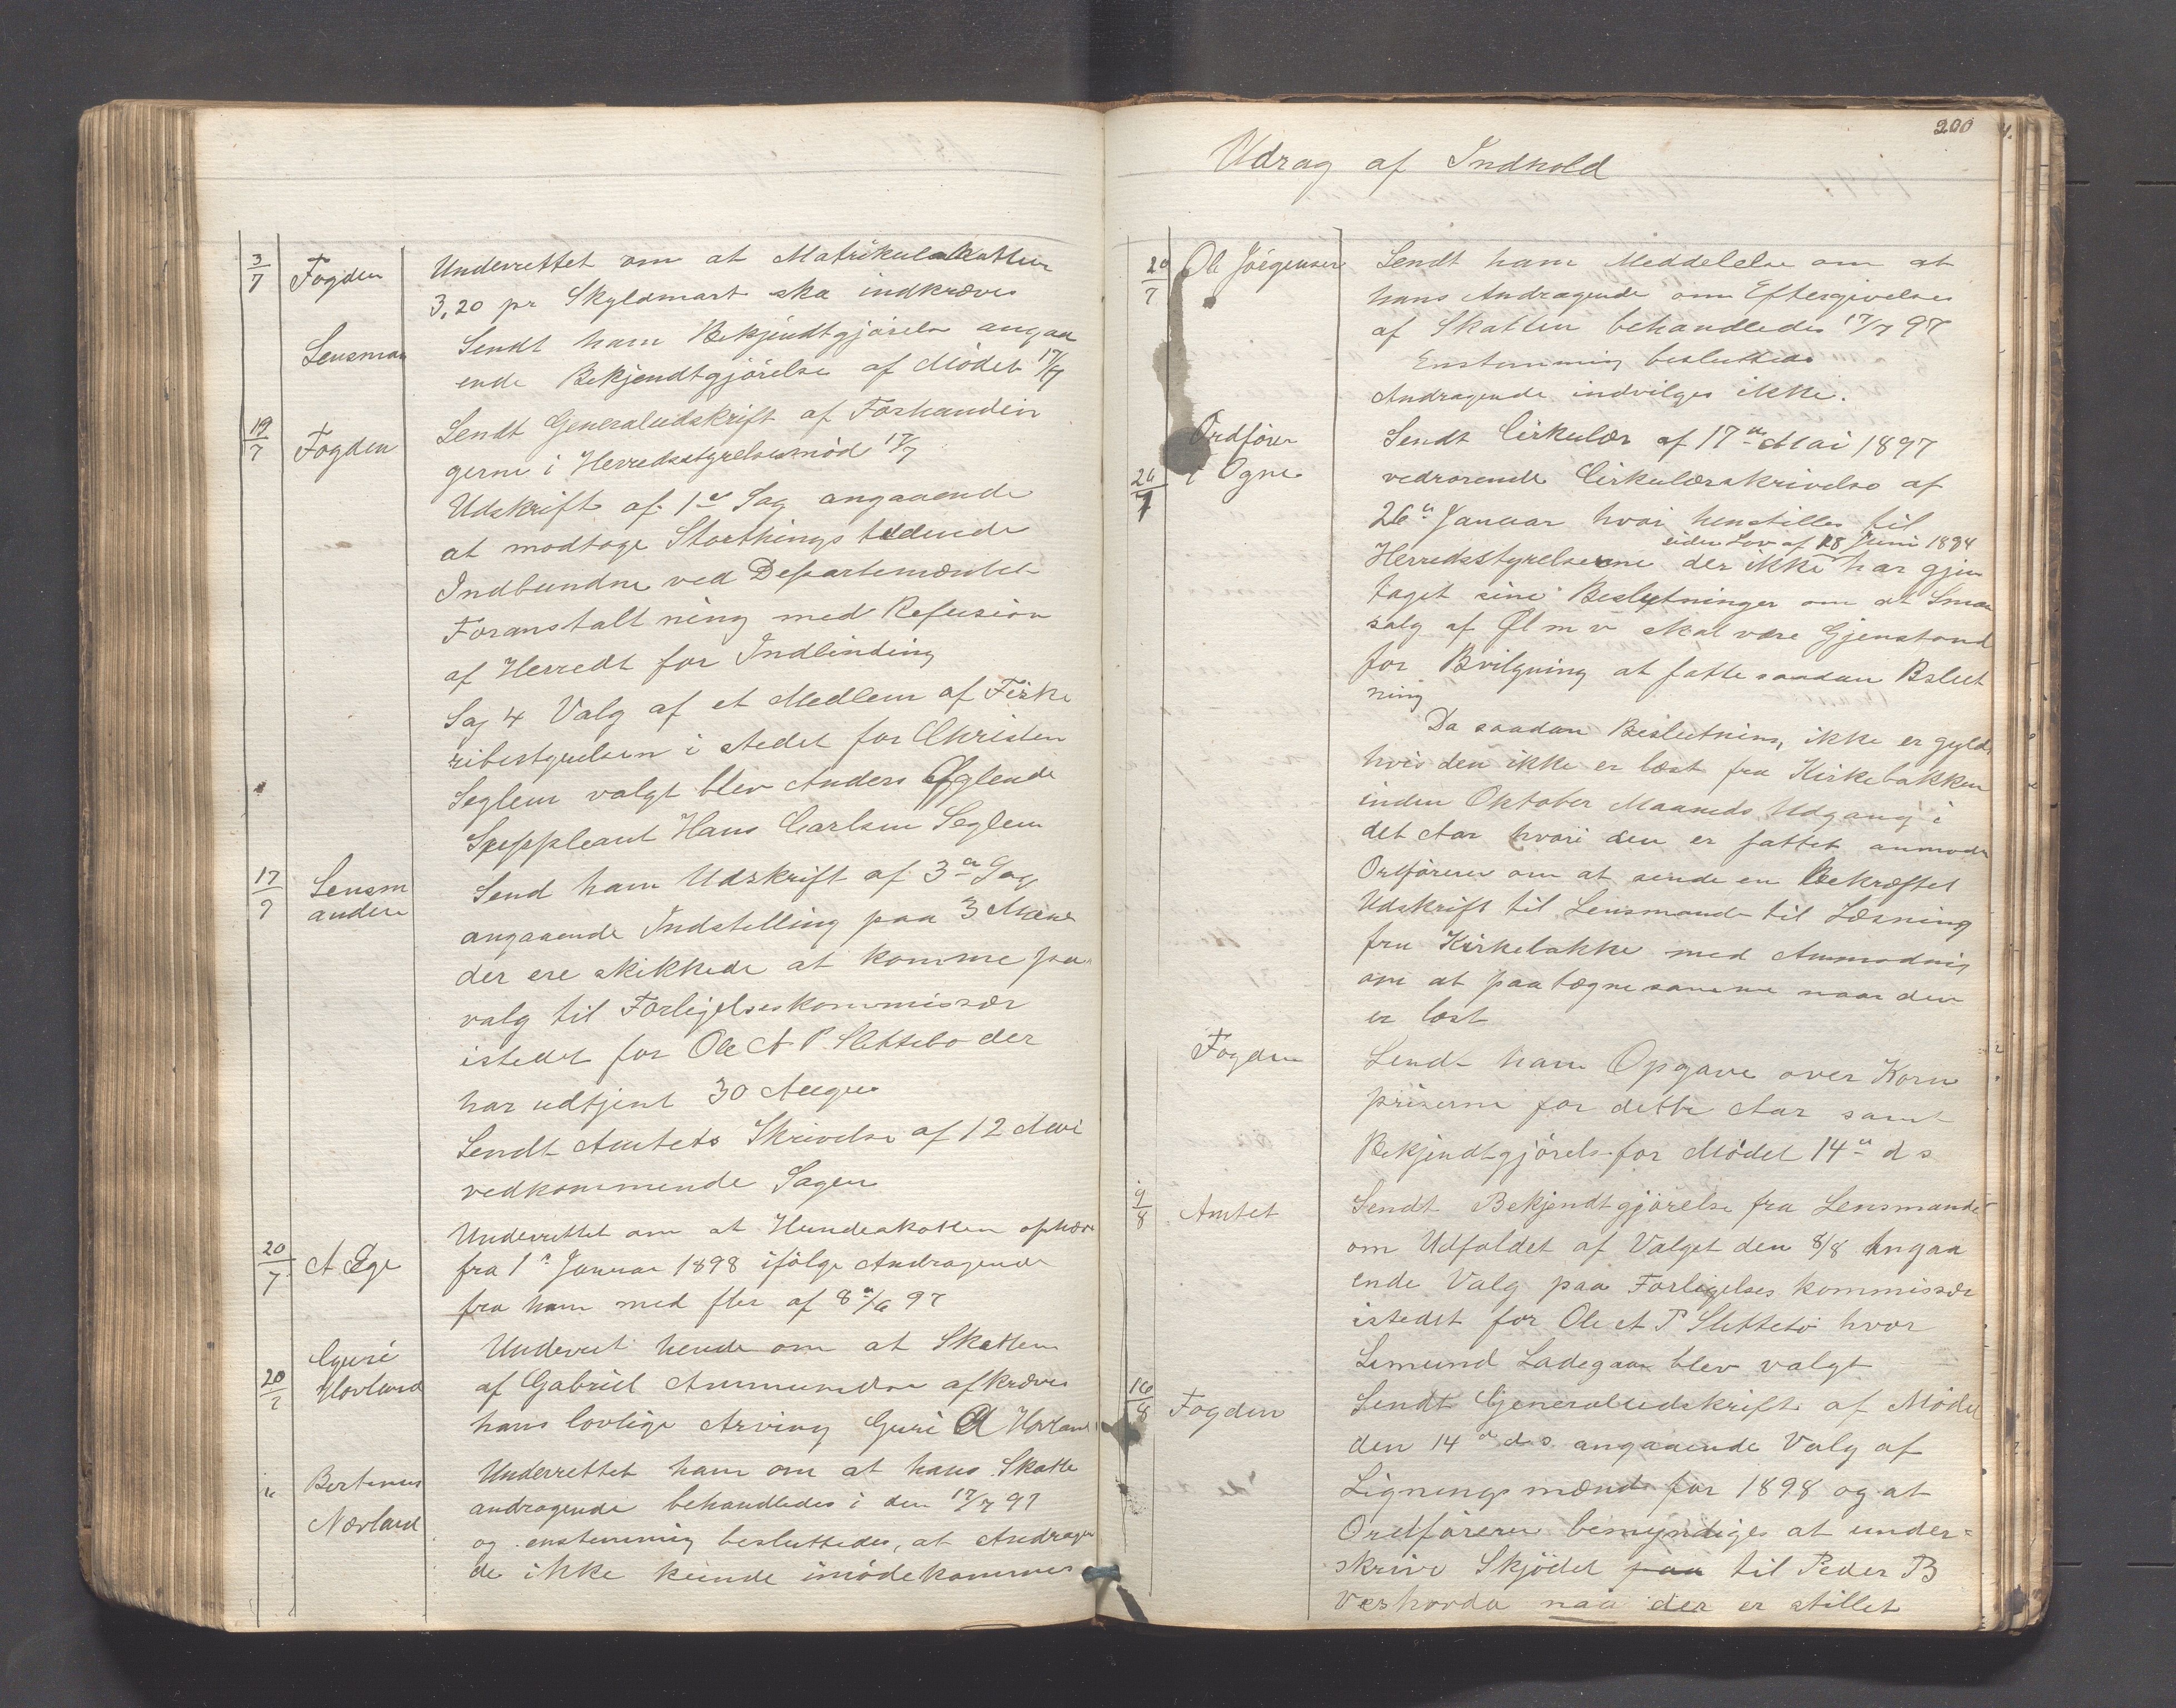 3/7 Fogden Underrettet om at Matrikulskatten
3,20 pr Skyldmark ska indkræves
Lensman Sendt ham Bekjendtgjörelse angaa
ende Bekjendtgjörelse af Mödet 17/7
19/7 Fogden Sendt Generaludskrift af Forhandlin
gerne i Herredsstyrelsesmöd 17/7
Udskrift af 1e Sag angaaende
at modtage Storthings tidende
Indbundne ved Departementet
Foranstaltning med Refusion
af Herredt for Indbinding
Sag 4 Valg af et Medlem af Fiske
ribestyrelsen i stedet for Christen
Seglem valgt blev Anders Øglende
Suppleant Hans Carlsen Seglem
17/7 Lensm Send ham Udskrift af 3a Sag
anden angaaende Indstilling paa 3 Mænd
der ere skikkede at komme paa
valg til Forligelseskommissær
istedet for Ole A P Slettebo der
har udtjent 30 Augus
Sendt Amtets Skrivelse af 12 Mai
vedkommende Sagen
Underrettet om at Hundeskatten ophæve
20/7 A Ege fra 1a Januar 1898 ifölge Andragende
fra ham med fler af 8a/6 97
Guri Underret hende om at Skatten
20/7 Hovland af Gabriel Ammundsen afkræves
hans lovlige Arving Guri A Hovland
" Bertinus Underrettet ham om at hans Skatte
Nærland andragende behandledes i den 17/7 97
og enstemmig besluttedes, at Andragen
de ikke kunde imödekommes
200
Udrag af Indhold
20/7 Ole Jörgensen Sendt ham Meddelelse om at
hans Andragende om Eftergivelse
af Skatten behandledes 17/7 97
Enstemmig besluttedes
Andragende indvilges ikke.
Ordförer Sendt Cirkulær af 17de Mai 1897
26/7 i Ogne vedrörende Cirkulærskrivelse af
26a Januar hvori henstilles til
siden Lov af 28 Juni 1894
Herredsstyrelserne der ikke har gjen
taget sine Beslutninger om at Smaa
salg af Øl m v skal være Gjenstand
for Bvilgning at fatte saadan Bslut
ning
Da saadan Beslutning, ikke er gyldi
hvis den ikke er læst fra Kirkebakken
inden Oktober Maaneds Udgang i
det Aar hvori den er fattet anmode
Ordföreren om at sende en Bekræftet
Udskrift til Lensmand til Læsning
fra Kirkebakke med Anmodnig
om at paategne samme naar den
er læst
Fogden Sendt ham Opgave over Korn
priserne for dette Aar samt
Bekjendtgjörels for Mödet 14a d s
9/8 Amtet Sendt Bekjendtgjörelse fra Lensmande
om Udfaldet af Valget den 8/8 Angaa
ende Valg paa Forligelses kommissær
istedet for Ole A P Slettebö hvor
Simund Ladegaar blev valgt
16/8 Fogden Sendt Generaludskrift af Mödet
den 14de d s. angaaende Valg af
Ligningsmænd for 1898 og at
Ordföreren bemyndiges at under=
skrive Skjödet paa til Peder B
Veshovda naa der er stillet